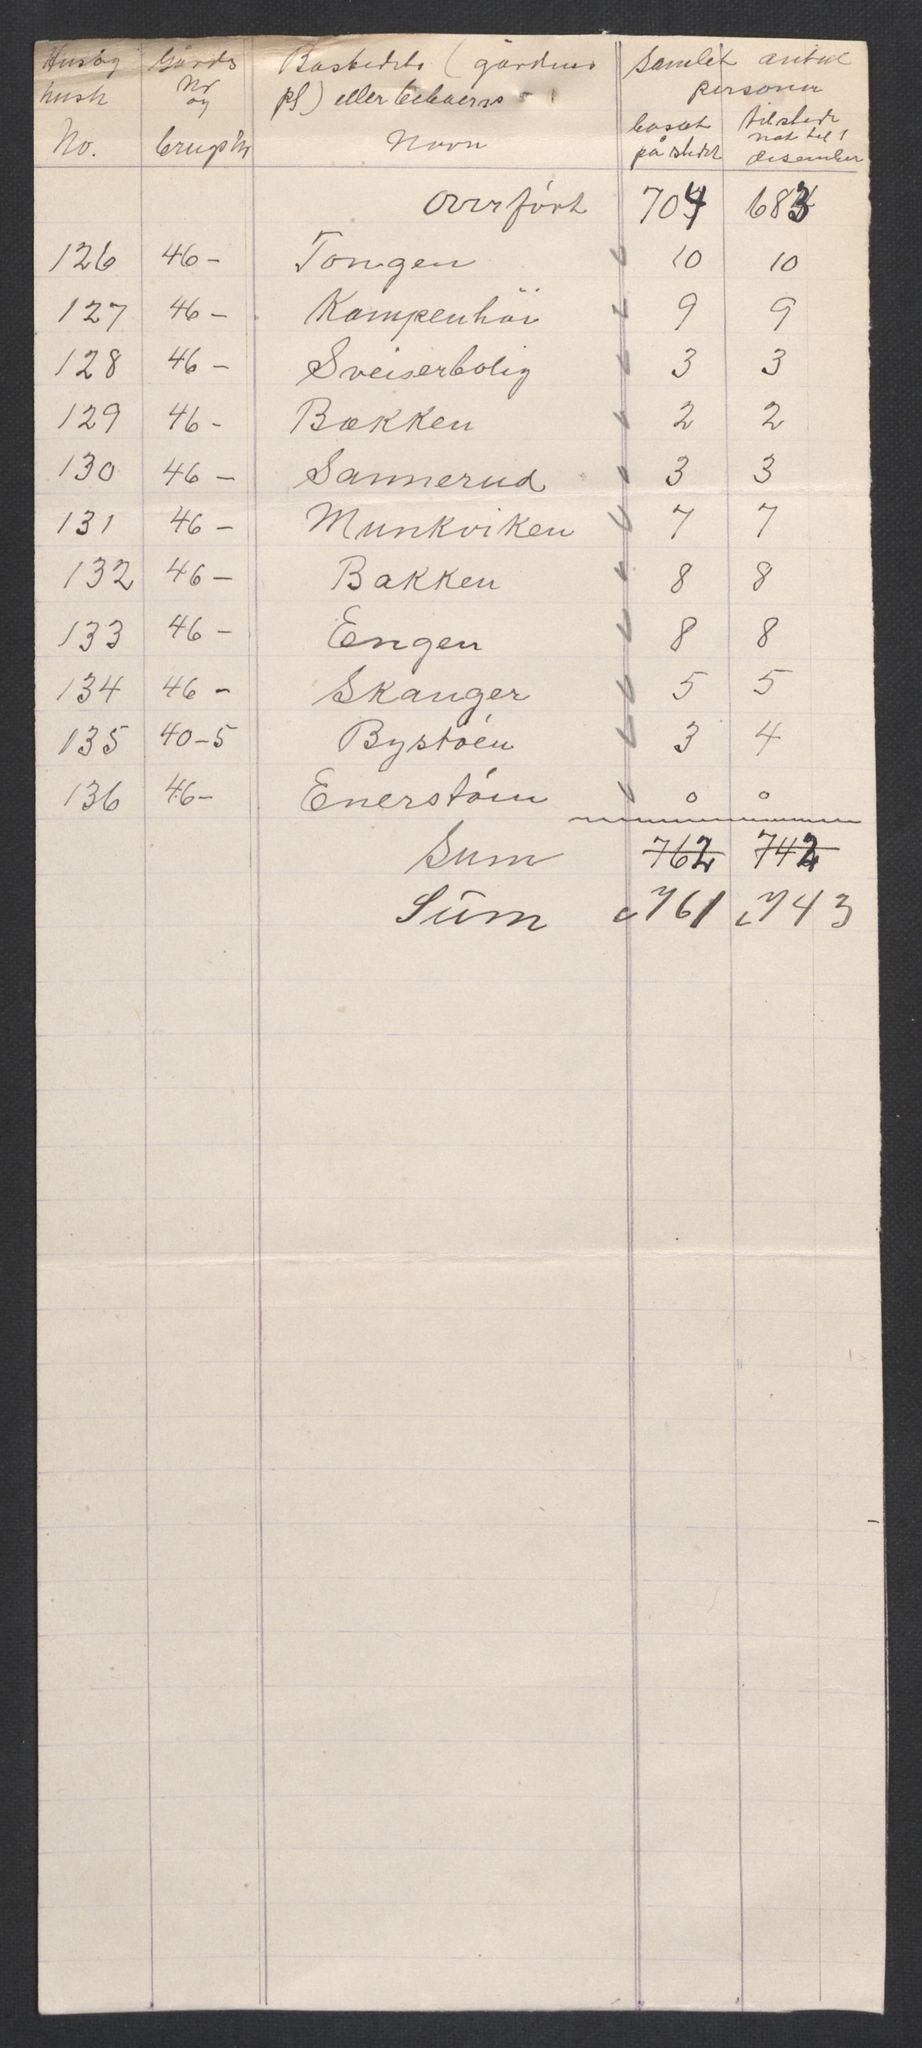 Hus og Gårds Bostedets (gårdens Samlet antal
hush Nr og pl) eller beboerns personer
No. brugs Nr Navn bosat på stedet tilstede nat til 1 desember
Overført 704 683
126 46- Tongen 10 10
127 46- Kampenhöi 9 9
128 46- Sveiserbolig 3 3
129 46- Bækken 2 2
130 46- Sannerud 3 3
131 46- Munkviken 7 7
132 46- Bakken 8 8
133 46- Engen 8 8
134 46- Skanger 5 5
135 40-5 Bystöen 3 4
136 46- Enerstöen 0 0
Sum 762 742
Sum 761 743